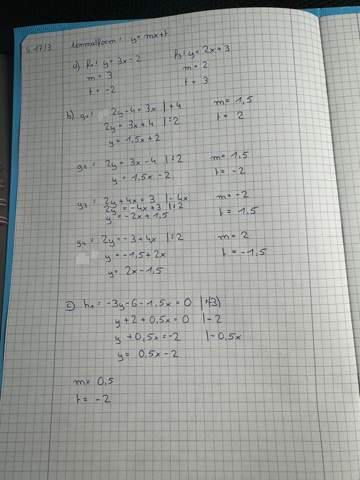 S. 17/3 Normalform: y= mx+t
a) h₁: y= 3x-2 h₂: y= 2x+3
m= 3 m= 2
t= -2 t= 3
b) g₁: 2y-4=3x |+4 m= 1,5
2y= 3x+4 |:2 t= 2
y= 1,5x+2
g₂: 2y= 3x-4 |:2 m= 1,5
y= 1,5x-2 t= -2
g₃: 2y+4x= 3 |-4x m= -2
2y= -4x+3 |:2 t= 1,5
y= -2x+1,5
g₄: 2y= -3+4x |:2 m= 2
y= -1,5+2x t= -1,5
y= 2x-1,5
c) h₁= -3y-6-1,5x= 0 |:(-3)
y+2+0,5x= 0 |-2
y+0,5x= -2 |-0,5x
y= 0,5x-2
m= 0,5
t= -2